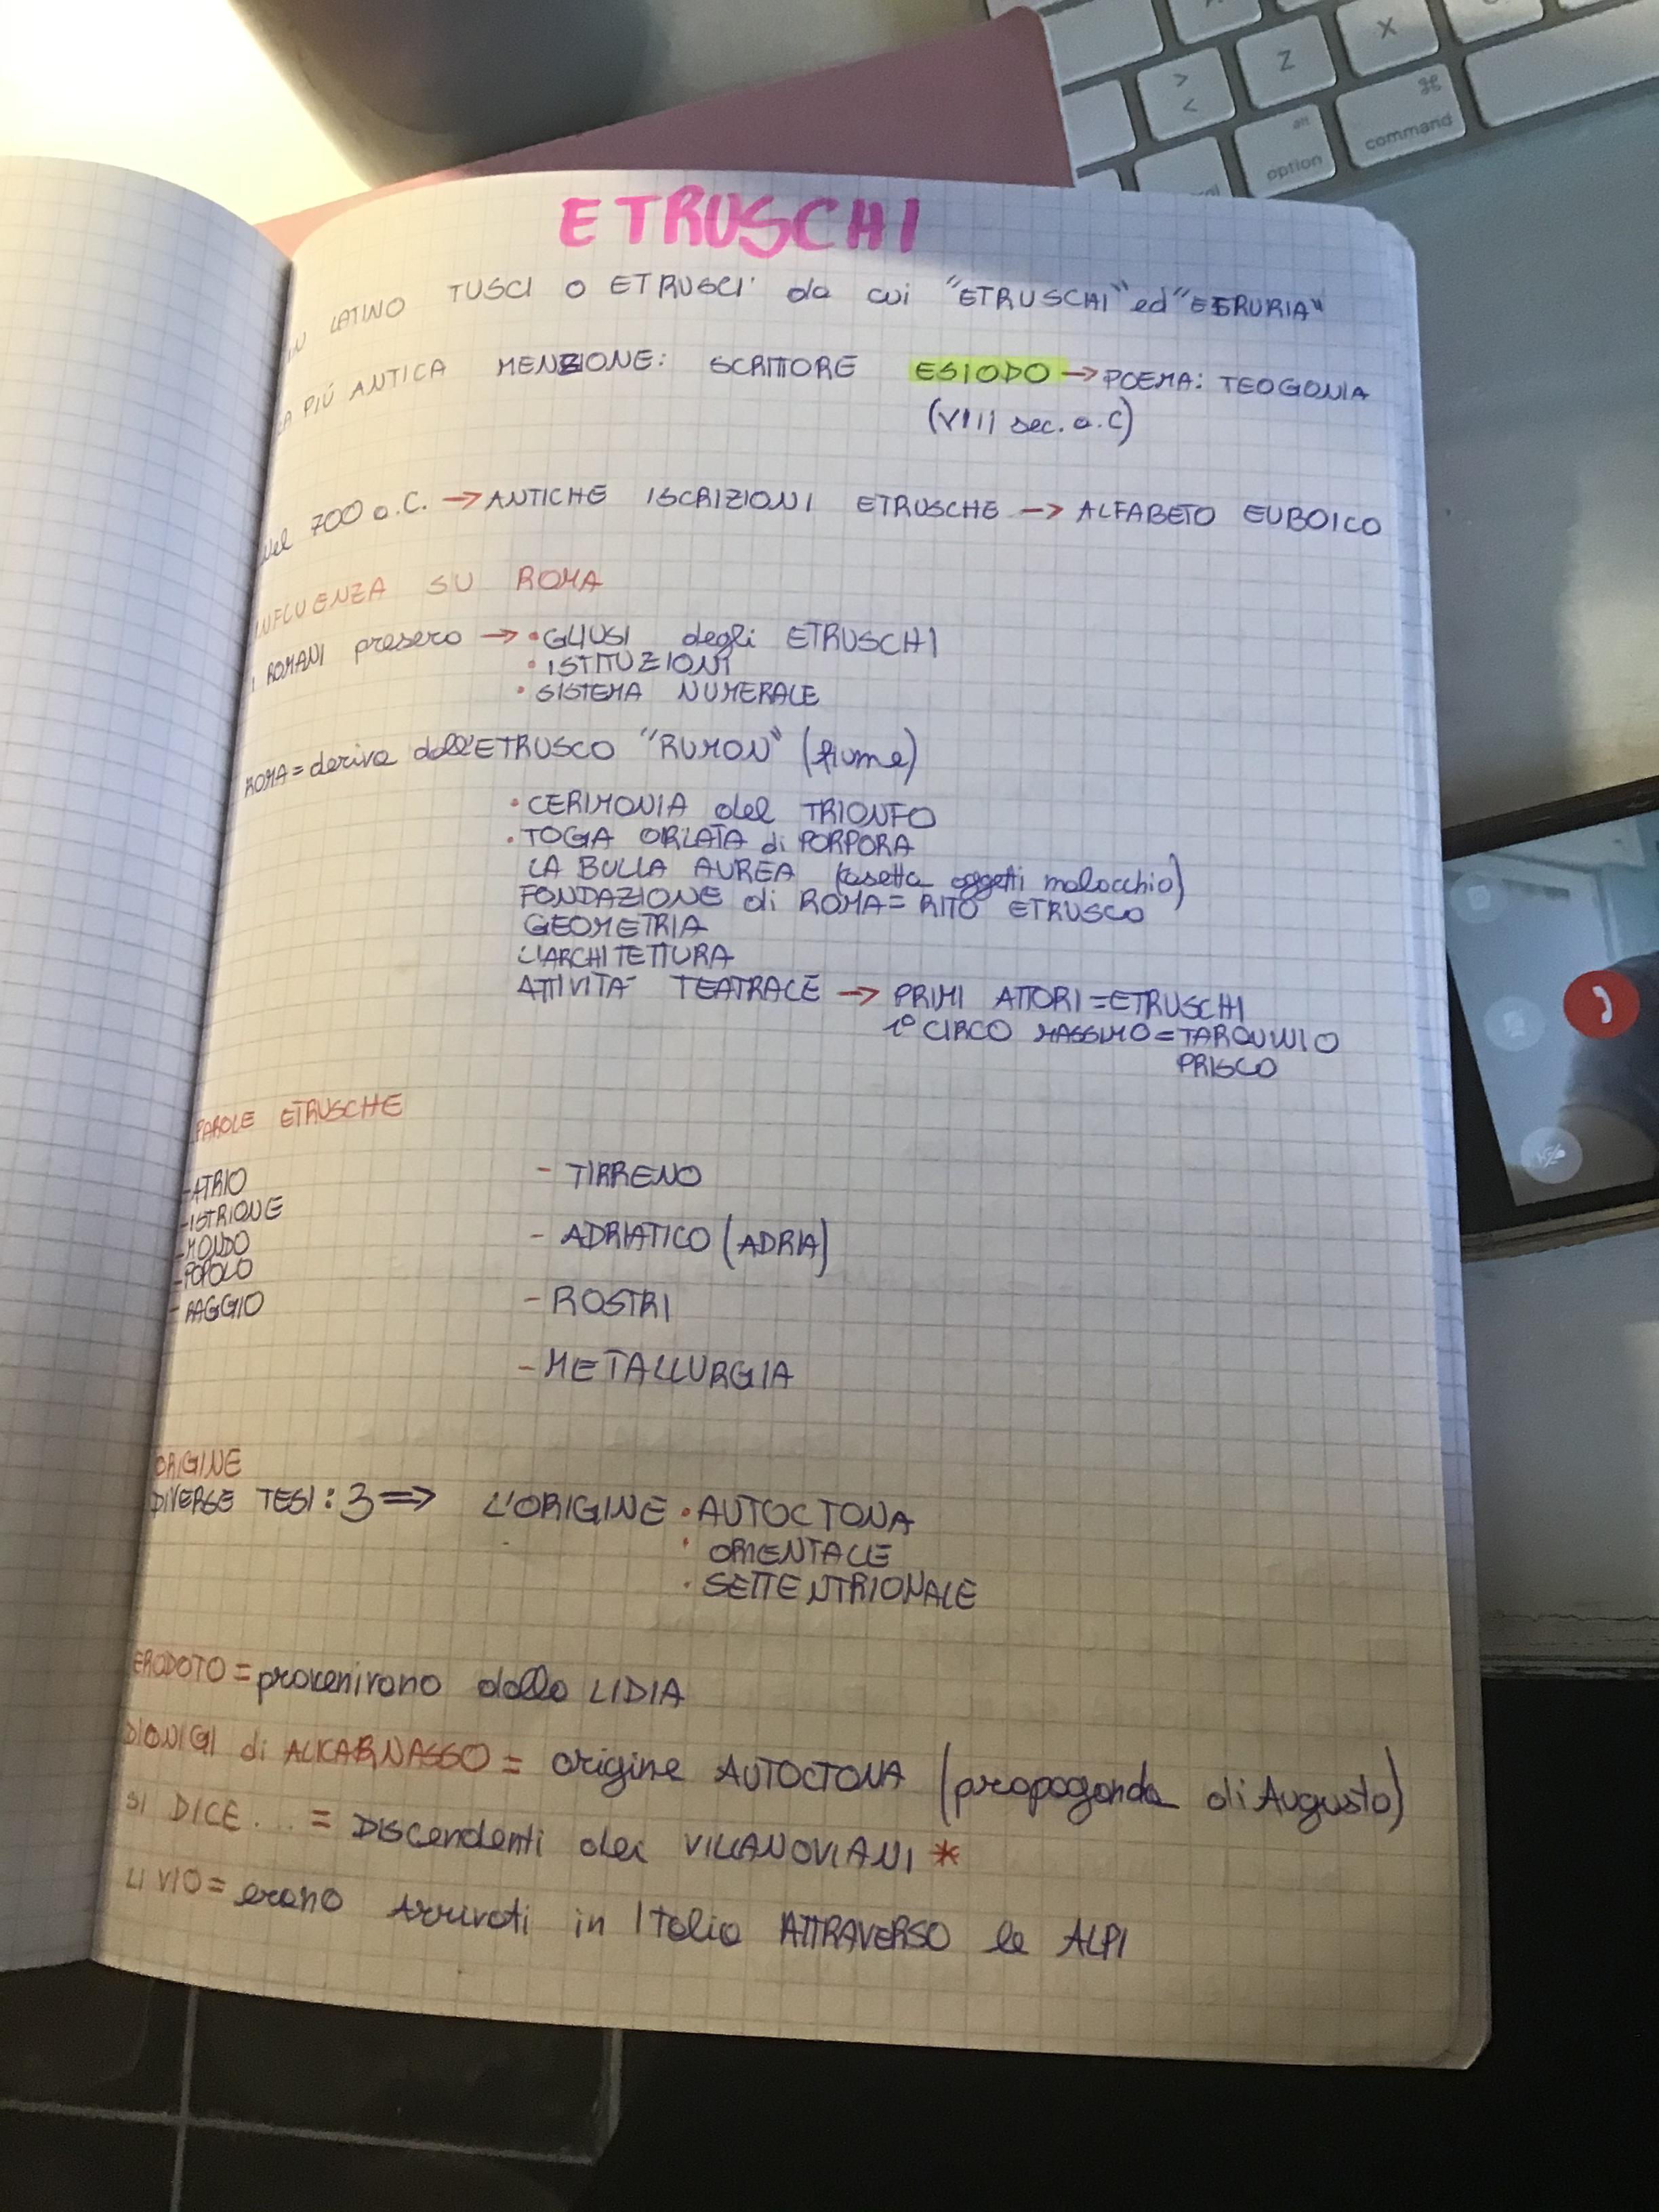 Z
X
>
<
⌘
alt
option
command
ETRUSCHI
IN LATINO TUSCI O ETRUSCI da cui "ETRUSCHI" ed "ETRURIA"
LA PIÚ ANTICA MENZIONE: SCRITTORE ESIODO → POEMA: TEOGONIA
(VIII sec. a.C)
Nel 700 a.C. → ANTICHE ISCRIZIONI ETRUSCHE → ALFABETO EUBOICO
INFLUENZA SU ROMA
I ROMANI presero → • GLI USI degli ETRUSCHI
• ISTITUZIONI
• SISTEMA NUMERALE
ROMA = deriva dall'ETRUSCO "RUMON" (fiume)
• CERIMONIA del TRIONFO
• TOGA ORLATA di PORPORA
LA BULLA AUREA (casetta oggetti malocchio)
FONDAZIONE di ROMA = RITO ETRUSCO
GEOMETRIA
L'ARCHITETTURA
ATTIVITÀ TEATRALE → PRIMI ATTORI = ETRUSCHI
1° CIRCO MASSIMO = TARQUINIO
PRISCO
PAROLE ETRUSCHE
- ATRIO
- ISTRIONE
- MONDO
- POPOLO
- RAGGIO
- TIRRENO
- ADRIATICO (ADRIA)
- ROSTRI
- METALLURGIA
ORIGINE
DIVERSE TESI: 3 ⇒ L'ORIGINE • AUTOCTONA
• ORIENTALE
• SETTENTRIONALE
ERODOTO = provenivano dalla LIDIA
DIONIGI di ALICARNASSO = origine AUTOCTONA (propaganda di Augusto)
SI DICE... = DIscendenti dei VILLANOVIANI *
LIVIO = erano Arrivati in ITalia ATTRAVERSO le ALPI